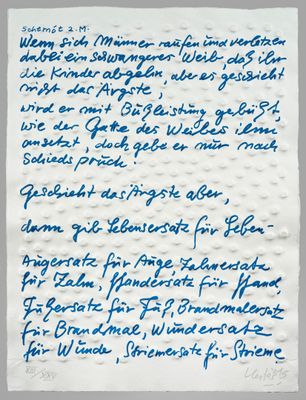 Schemot 2. M.
Wenn sich Männer raufen und verletzen
dabei ein schwangeres Weib, daß ihr
die Kinder abgehn, aber es geschieht
nicht das Ärgste,
wird er mit Bußleistung gebüßt,
wie der Gatte des Weibes ihm
ansetzt, doch gebe er nur nach
Schiedspruch.
Geschieht das Ärgste aber,
dann gib Lebensersatz für Leben-
Augersatz für Auge, Zahnersatz
für Zahn, Handersatz für Hand,
Fußersatz für Fuß, Brandmalersatz
für Brandmal, Wundersatz
für Wunde, Striemersatz für Strieme